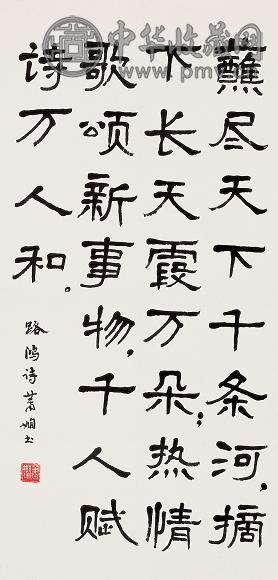 中华收藏网
蘸尽天下千条河,摘
下长天霞万朵;热情
歌颂新事物,千人赋
诗万人和。
路鸿诗萧娴书